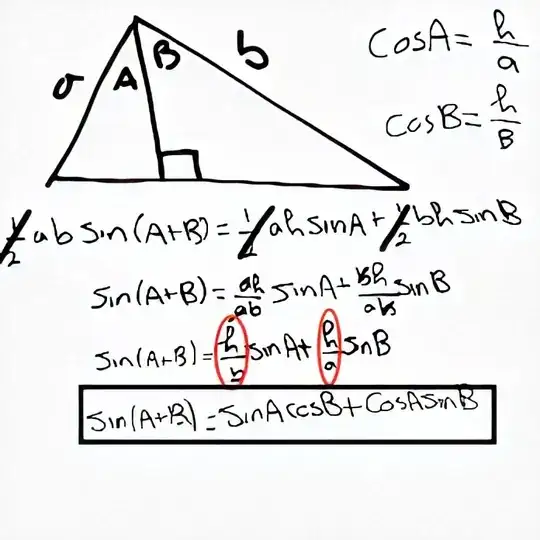 a A B b
CosA = h/a
CosB = h/B
1/2 ab sin(A+B) = 1/2 ah sinA + 1/2 bh sinB
sin(A+B) = ah/ab sinA + bh/ab sinB
sin(A+B) = h/b sinA + h/a sinB
sin(A+B) = sinA cosB + CosA sinB